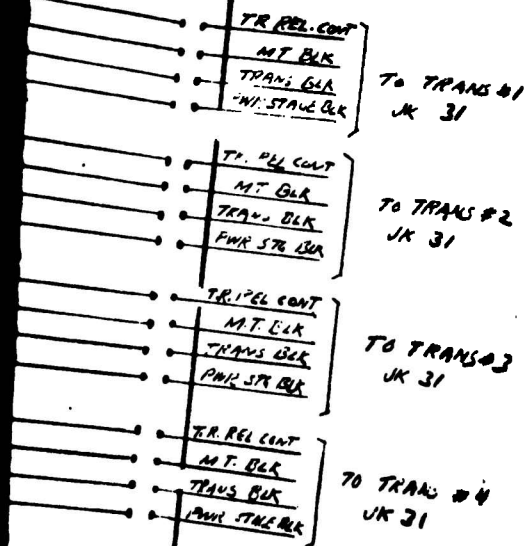 TR REL. CONT
MT BLK
TRANS BLK
PWR STAGE BLK
TO TRANS #1
JK 31
TR. REL CONT
MT BLK
TRANS BLK
PWR STG BLK
TO TRANS #2
JK 31
T.R. REL CONT
M.T. BLK
TRANS BLK
PWR STG BLK
TO TRANS #3
JK 31
T.R. REL CONT
M.T. BLK
TRANS BLK
PWR STAGE BLK
TO TRANS #4
JK 31